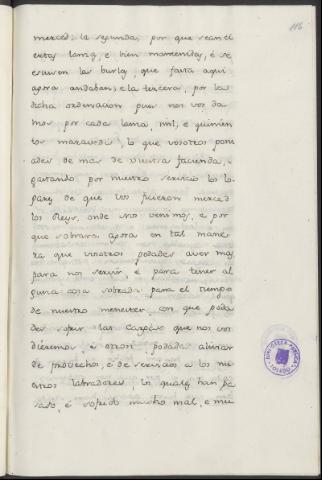 116
merced: la segunda, por que sean el
ertas lanzs, e bien mantenidas, é se
escusen las burlas, que fasta aqui
agora andaban; e la tercera, por la
dicha ordenacion pues nos vos da
mos, por cada lanza, mil, e quinien
tos maravedis, lo que vosotros pon
ades de mas de vuestra facienda,
gastando, por nuestro servicio lo lo
gares de que vos ficieron merced
los Reys, onde nos venimos, e por
que sobrara agora en tal mane
ra que vosotros podades aver mas
para nos servir, é para tener al
guna cosa sobrada para el tiempo
de nuestro menester, con que poda
des sofrir las cargas que nos vos
dieremos, é otrosi podades aliviar
de provechos, é de servicios a los nu
estros labradores, los quales han pa
sado, é sofrido mucho mal, e mu
BIBLIOTECA PUBLICA
TOLEDO